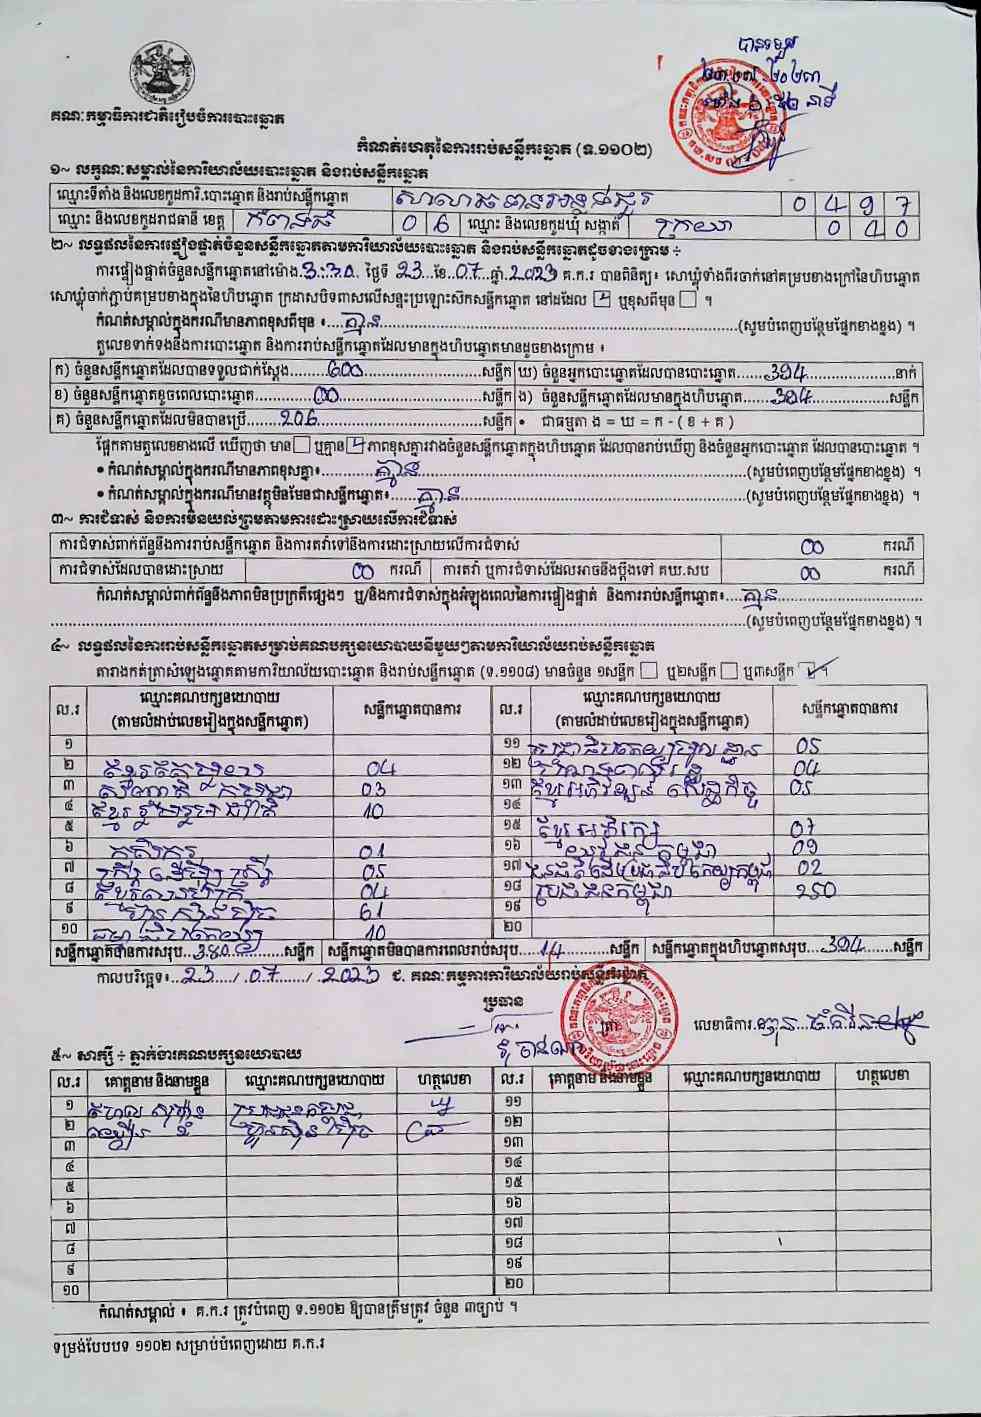 បានទទួល
គណៈកម្មាធិការជាតិរៀបចំការបោះឆ្នោត
កំណត់ហេតុនៃការរាប់សន្លឹកឆ្នោត (ទ.១១០២)
១~ លក្ខណៈសម្គាល់នៃការិយាល័យបោះឆ្នោត និងរាប់សន្លឹកឆ្នោត
ឈ្មោះទីតាំង និងលេខកូដការិ.បោះឆ្នោត និងរាប់សន្លឹកឆ្នោត 0 4 9 7
ឈ្មោះ និងលេខកូដរាជធានី ខេត្ត កំពង់ធំ 0 6 ឈ្មោះ និងលេខកូដឃុំ សង្កាត់
២~ លទ្ធផលនៃការផ្ទៀងផ្ទាត់ចំនួនសន្លឹកឆ្នោតតាមការិយាល័យបោះឆ្នោត និងរាប់សន្លឹកឆ្នោតដូចខាងក្រោម ÷
ការផ្ទៀងផ្ទាត់ចំនួនសន្លឹកឆ្នោតនៅម៉ោង.3:30 ថ្ងៃទី 23 ...ខែ.07...ឆ្នាំ.2023 គ.ក.រ បានពិនិត្យ៖ សោឃ្លុំទាំងពីរចាក់នៅគម្របខាងក្រៅនៃហិបឆ្នោត
សោឃ្លុំចាក់ភ្ជាប់គម្របខាងក្នុងនៃហិបឆ្នោត ក្រដាសបិទពាសលើសន្ទះប្រឡោះស៊កសន្លឹកឆ្នោត នៅដដែល ☑ ឬខុសពីមុន □ ។
កំណត់សម្គាល់ក្នុងករណីមានភាពខុសពីមុន ៖....គ្មាន....(សូមបំពេញបន្ថែមផ្នែកខាងខ្នង) ។
តួលេខទាក់ទងនឹងការបោះឆ្នោត និងការរាប់សន្លឹកឆ្នោតដែលមានក្នុងហិបឆ្នោតមានដូចខាងក្រោម ៖
ក) ចំនួនសន្លឹកឆ្នោតដែលបានទទួលជាក់ស្តែង....600....សន្លឹក ឃ) ចំនួនអ្នកបោះឆ្នោតដែលបានបោះឆ្នោត....394....នាក់
ខ) ចំនួនសន្លឹកឆ្នោតខូចពេលបោះឆ្នោត....00....សន្លឹក ង) ចំនួនសន្លឹកឆ្នោតដែលមានក្នុងហិបឆ្នោត....394....សន្លឹក
គ) ចំនួនសន្លឹកឆ្នោតដែលមិនបានប្រើ....206....សន្លឹក • ជាធម្មតា ង = ឃ = ក - ( ខ + គ )
ផ្អែកតាមតួលេខខាងលើ ឃើញថា មាន □ ឬគ្មាន ☑ ភាពខុសគ្នារវាងចំនួនសន្លឹកឆ្នោតក្នុងហិបឆ្នោត ដែលបានរាប់ឃើញ និងចំនួនអ្នកបោះឆ្នោត ដែលបានបោះឆ្នោត ។
• កំណត់សម្គាល់ក្នុងករណីមានភាពខុសគ្នា៖....គ្មាន....(សូមបំពេញបន្ថែមផ្នែកខាងខ្នង) ។
• កំណត់សម្គាល់ក្នុងករណីមានវត្ថុមិនមែនជាសន្លឹកឆ្នោត៖....គ្មាន....(សូមបំពេញបន្ថែមផ្នែកខាងខ្នង) ។
៣~ ការជំទាស់ និងការមិនយល់ព្រមតាមការដោះស្រាយលើការជំទាស់
ការជំទាស់ពាក់ព័ន្ធនឹងការរាប់សន្លឹកឆ្នោត និងការតវ៉ាទៅនឹងការដោះស្រាយលើការជំទាស់ 00 ករណី
ការជំទាស់ដែលបានដោះស្រាយ 00 ករណី ការតវ៉ា ឬការជំទាស់ដែលអាចនឹងប្តឹងទៅ គឃ.សប 00 ករណី
កំណត់សម្គាល់ពាក់ព័ន្ធនឹងភាពមិនប្រក្រតីផ្សេងៗ ឬ/និងការជំទាស់ក្នុងអំឡុងពេលនៃការផ្ទៀងផ្ទាត់ និងការរាប់សន្លឹកឆ្នោត៖....គ្មាន....
(សូមបំពេញបន្ថែមផ្នែកខាងខ្នង) ។
៤~ លទ្ធផលនៃការរាប់សន្លឹកឆ្នោតសម្រាប់គណបក្សនយោបាយនីមួយៗតាមការិយាល័យរាប់សន្លឹកឆ្នោត
តារាងកត់ត្រាសំឡេងឆ្នោតតាមការិយាល័យបោះឆ្នោត និងរាប់សន្លឹកឆ្នោត (ទ.១១០៨) មានចំនួន ១សន្លឹក □ ឬ២សន្លឹក □ ឬ៣សន្លឹក ☑ ។
ល.រ ឈ្មោះគណបក្សនយោបាយ (តាមលំដាប់លេខរៀងក្នុងសន្លឹកឆ្នោត) សន្លឹកឆ្នោតបានការ ល.រ ឈ្មោះគណបក្សនយោបាយ (តាមលំដាប់លេខរៀងក្នុងសន្លឹកឆ្នោត) សន្លឹកឆ្នោតបានការ
១ ១១ 05
២ 04 ១២ 04
៣ 03 ១៣ ខ្មែរអភិវឌ្ឍន៍សេដ្ឋកិច្ច 05
៤ 10 ១៤
៥ ១៥ ខ្មែរអភិរក្ស 07
៦ កសិករ 01 ១៦ 09
៧ 05 ១៧ 02
៨ 04 ១៨ ប្រជាជនកម្ពុជា 250
៩ ហ្វ៊ុនស៊ិនប៉ិច 61 ១៩
១០ 10 ២០
សន្លឹកឆ្នោតបានការសរុប..380..សន្លឹក សន្លឹកឆ្នោតមិនបានការពេលរាប់សរុប..14..សន្លឹក សន្លឹកឆ្នោតក្នុងហិបឆ្នោតសរុប..394..សន្លឹក
កាលបរិច្ឆេទ៖..23../..07../..2023 ជ. គណៈកម្មការការិយាល័យរាប់សន្លឹកឆ្នោត
ប្រធាន
លេខាធិការ
៥~ សាក្សី ÷ ភ្នាក់ងារគណបក្សនយោបាយ
ល.រ គោត្តនាម និងនាមខ្លួន ឈ្មោះគណបក្សនយោបាយ ហត្ថលេខា ល.រ គោត្តនាម និងនាមខ្លួន ឈ្មោះគណបក្សនយោបាយ ហត្ថលេខា
១ ប្រជាជនកម្ពុជា ១១
២ ហ្វ៊ុនស៊ិនប៉ិច ១២
៣ ១៣
៤ ១៤
៥ ១៥
៦ ១៦
៧ ១៧
៨ ១៨
៩ ១៩
១០ ២០
កំណត់សម្គាល់ ៖ គ.ក.រ ត្រូវបំពេញ ទ.១១០២ ឱ្យបានត្រឹមត្រូវ ចំនួន ៣ច្បាប់ ។
ទម្រង់បែបបទ ១១០២ សម្រាប់បំពេញដោយ គ.ក.រ